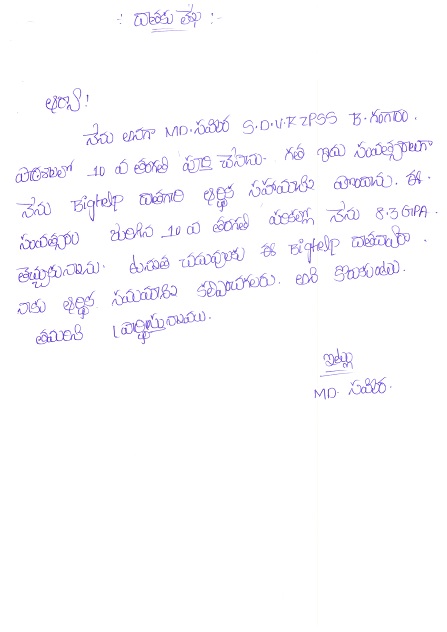 :- దాతకు లేఖ :-
ఆర్యా!
నేను అనగా MD. సమీర S.D.V.R ZPSS B. గంగారం.
పాఠశాలలో 10 వ తరగతి పూర్తి చేసాను. గత ఐదు సంవత్సరాలుగా
నేను Bighelp దాతగారి ఆర్థిక సహాయాన్ని పొందాను. ఈ.
సంవత్సరం జరిగిన 10 వ తరగతి పరీక్షల్లో నేను 8.3 GPA.
తెచ్చుకున్నాను. తరువాత చదువులకు ఈ Bighelp ద్వారా.
నాకు ఆర్థిక సహాయాన్ని కల్పించగలరు. అని కోరుకుంటు.
తమరిని ప్రార్థిస్తున్నాము.
ఇట్లు
MD. సమీర.